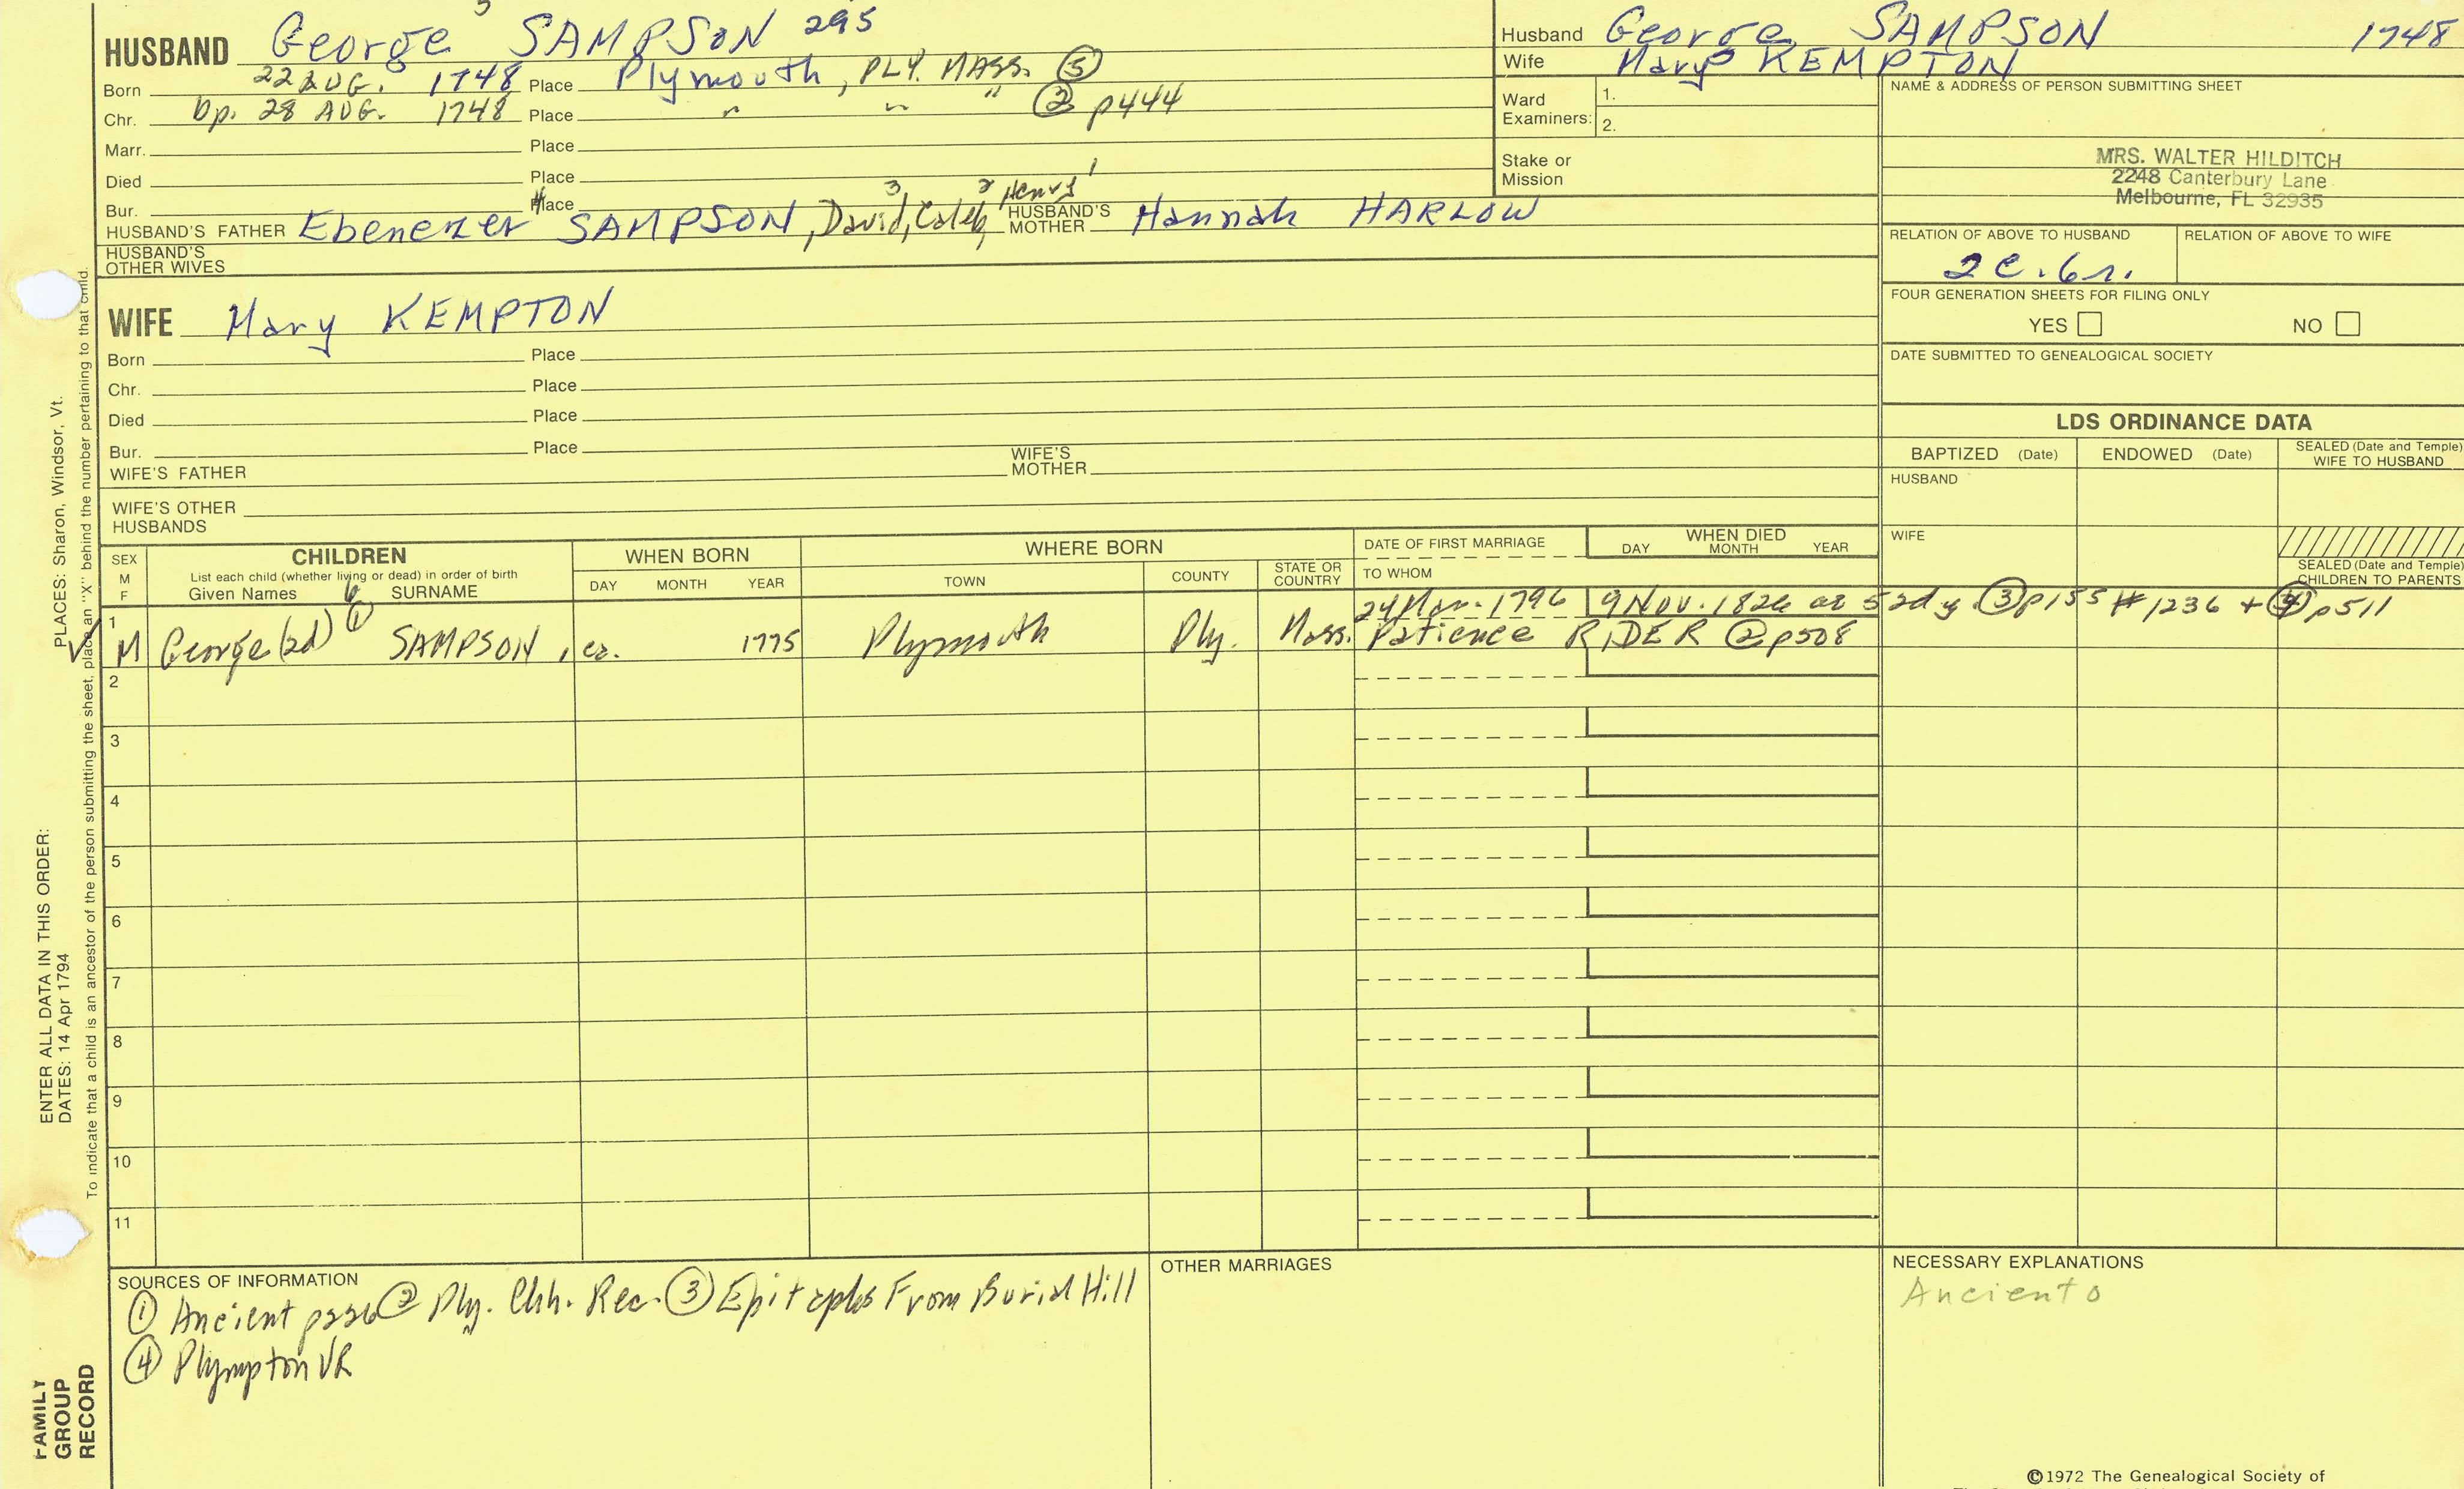 5
HUSBAND George SAMPSON 295
Born 22 AUG. 1748 Place Plymouth, PLY. MASS. ⑤
Chr. bp. 28 AUG. 1748 Place " " " ② p444
Marr. Place
Died Place
Bur. Place
4 3 2 Henry 1
HUSBAND'S FATHER Ebenezer SAMPSON, David, Caleb, HUSBAND'S MOTHER Hannah HARLOW
HUSBAND'S OTHER WIVES
Husband George SAMPSON 1748
Wife Mary KEMPTON
Ward Examiners: 1.
2.
Stake or Mission
NAME & ADDRESS OF PERSON SUBMITTING SHEET
MRS. WALTER HILDITCH
2248 Canterbury Lane
Melbourne, FL 32935
RELATION OF ABOVE TO HUSBAND RELATION OF ABOVE TO WIFE
2c.6r.
FOUR GENERATION SHEETS FOR FILING ONLY
YES NO
DATE SUBMITTED TO GENEALOGICAL SOCIETY
WIFE Mary KEMPTON
Born Place
Chr. Place
Died Place
Bur. Place
WIFE'S FATHER WIFE'S MOTHER
WIFE'S OTHER HUSBANDS
LDS ORDINANCE DATA
BAPTIZED (Date) ENDOWED (Date) SEALED (Date and Temple) WIFE TO HUSBAND
HUSBAND
WIFE
SEALED (Date and Temple) CHILDREN TO PARENTS
SEX M F
CHILDREN
List each child (whether living or dead) in order of birth
Given Names SURNAME
WHEN BORN
DAY MONTH YEAR
WHERE BORN
TOWN COUNTY STATE OR COUNTRY
DATE OF FIRST MARRIAGE
TO WHOM
WHEN DIED
DAY MONTH YEAR
6 ①
24 Mar. 1796 9 Nov. 1826 ae 52d y. ③ p155 #1236 + ④ p511
1 √ M George (2d) SAMPSON, ca. 1775 Plymouth Ply. Mass. Patience RIDER ② p508
2
3
4
5
6
7
8
9
10
11
SOURCES OF INFORMATION
① Ancient p226 ② Ply. Chh. Rec. ③ Epitaphs From Burial Hill
④ Plympton VR
OTHER MARRIAGES
NECESSARY EXPLANATIONS
Ancient
©1972 The Genealogical Society of
PLACES: Sharon, Windsor, Vt.
ENTER ALL DATA IN THIS ORDER:
DATES: 14 Apr 1794
To indicate that a child is an ancestor of the person submitting the sheet, place an "X" behind the number pertaining to that child.
FAMILY
GROUP
RECORD